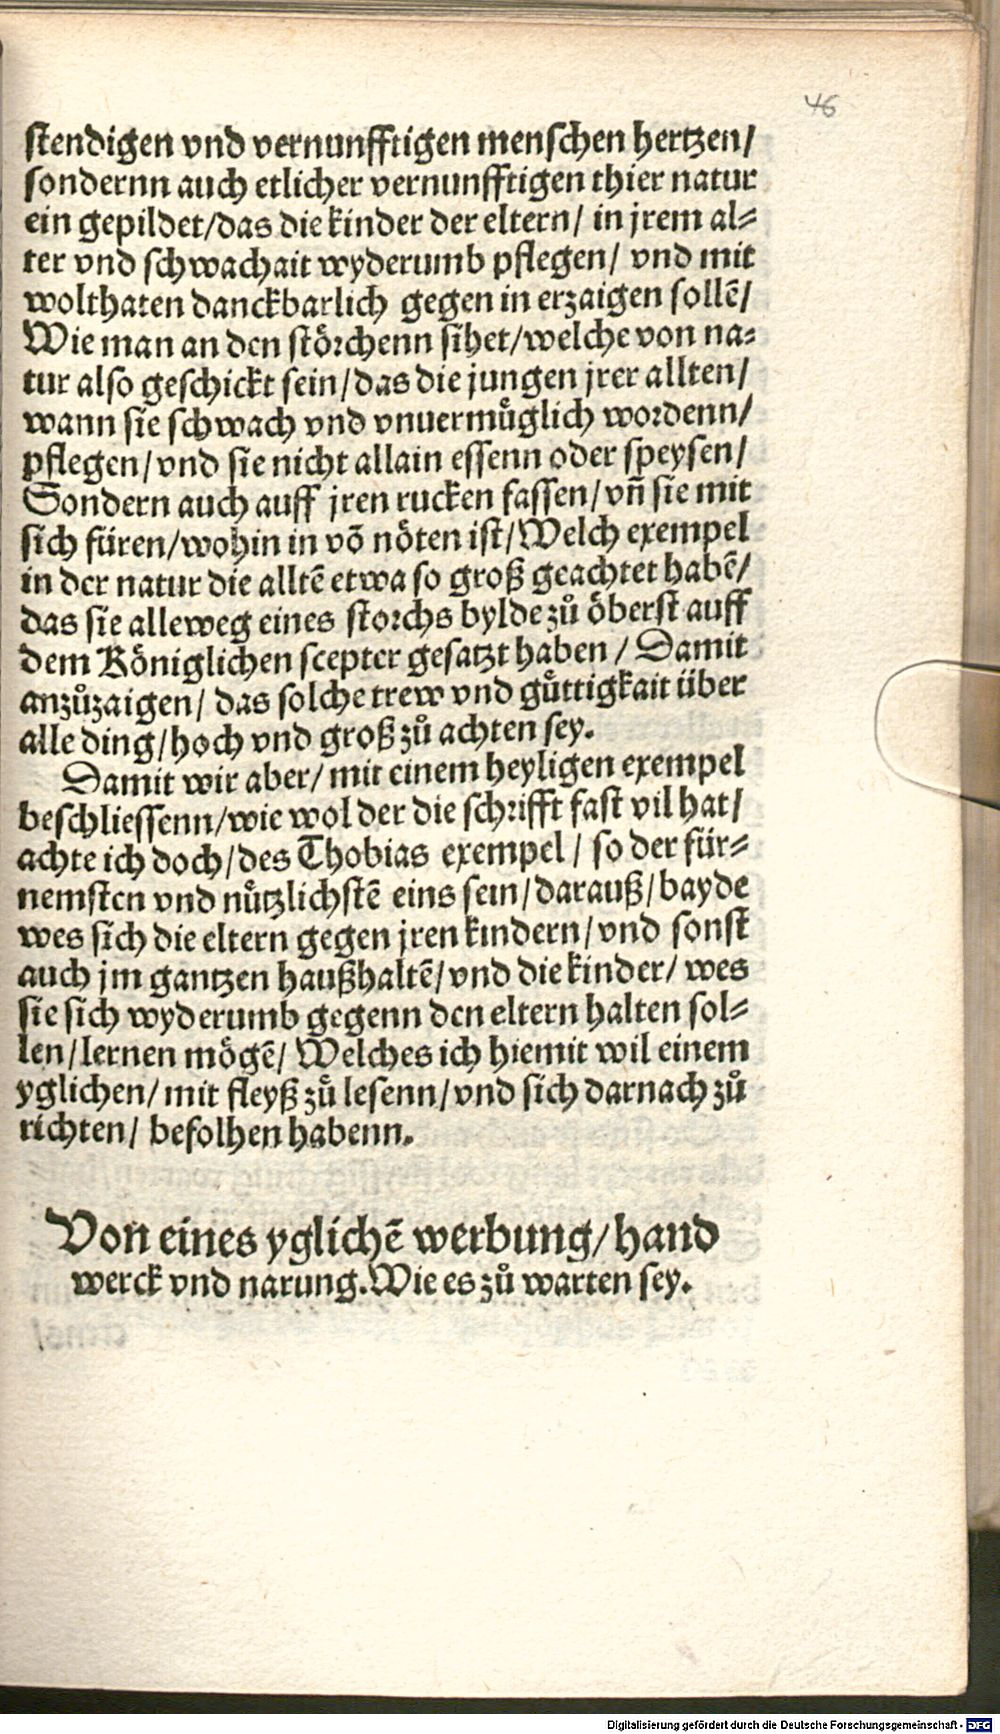 46
stendigen vnd vernunfftigen menschen hertzen/
sondernn auch etlicher vernunfftigen thier natur
ein gepildet/das die kinder der eltern/ in jrem al⸗
ter vnd schwachait wyderumb pflegen/ vnd mit
wolthaten danckbarlich gegen in erzaigen sollẽ/
Wie man an den störchenn sihet/welche von na⸗
tur also geschickt sein/das die jungen jrer allten/
wann sie schwach vnd vnuermuͤglich wordenn/
pflegen/vnd sie nicht allain essenn oder speysen/
Sondern auch auff jren rucken fassen/vñ sie mit
sich füren/wohin in võ nöten ist/Welch exempel
in der natur die alltẽ etwa so groß geachtet habẽ/
das sie alleweg eines storchs bylde zů öberst auff
dem Königlichen scepter gesatzt haben / Damit
anzůzaigen/ das solche trew vnd guͤttigkait über
alle ding/hoch vnd groß zů achten sey.
Damit wir aber/ mit einem heyligen exempel
beschliessenn/wie wol der die schrifft fast vil hat/
achte ich doch/des Thobias exempel/ so der für⸗
nemsten vnd nuͤtzlichstẽ eins sein/darauß/bayde
wes sich die eltern gegen jren kindern/vnd sonst
auch jm gantzen haußhaltẽ/vnd die kinder/ wes
sie sich wyderumb gegenn den eltern halten sol⸗
len/lernen mögẽ/ Welches ich hiemit wil einem
yglichen/ mit fleyß zů lesenn/vnd sich darnach zů
richten/ befolhen habenn.
Von eines yglichẽ werbung/hand
werck vnd narung.Wie es zů warten sey.
Digitalisierung gefördert durch die Deutsche Forschungsgemeinschaft - DFG